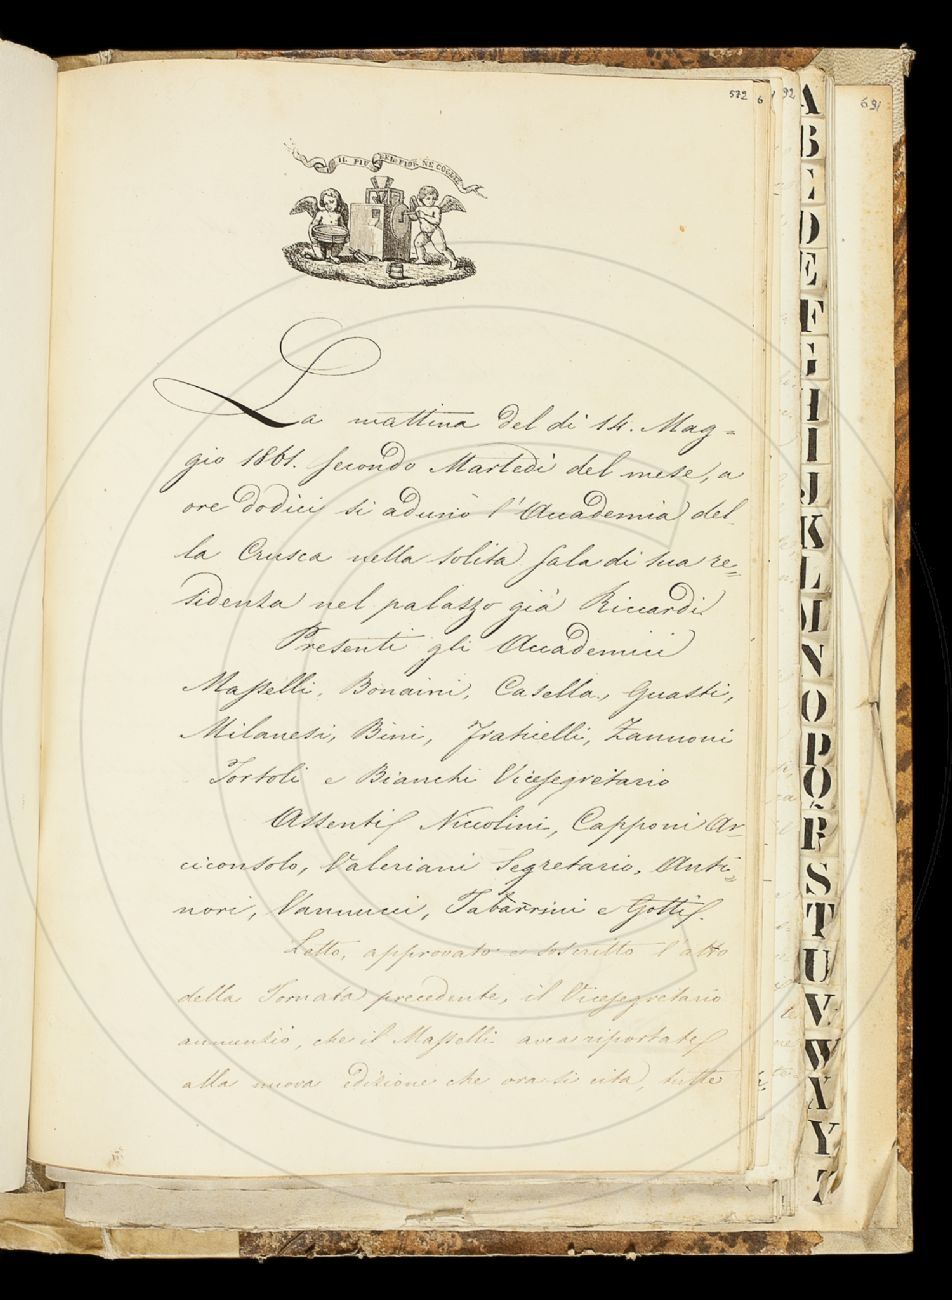 572
6
92
691
IL PIÙ BEL FIOR NE COGLIE
La mattina del dì 14. Mag=
gio 1861. secondo Martedì del mese, a
ore dodici si adunò l'Accademia del
la Crusca nella solita sala di sua re=
sidenza nel palazzo già Riccardi
Presenti gli Accademici
Masselli, Bonaini, Casella, Guasti,
Milanesi, Bini, Fraticelli, Zannoni
Tortoli e Bianchi Vicesegretario
Assenti Niccolini, Capponi Ar
ciconsolo, Valeriani Segretario, Anti=
nori, Vannucci, Tabarrini e Gotti.
Letto, approvato e soscritto l'atto
della Tornata precedente, il Vicesegretario
annunziò, che il Masselli avea riportate
alla nuova edizione che ora si cita, tutte
A
B
C
D
E
F
G
H
I
J
K
L
M
N
O
P
Q
R
S
T
U
V
W
X
Y
Z